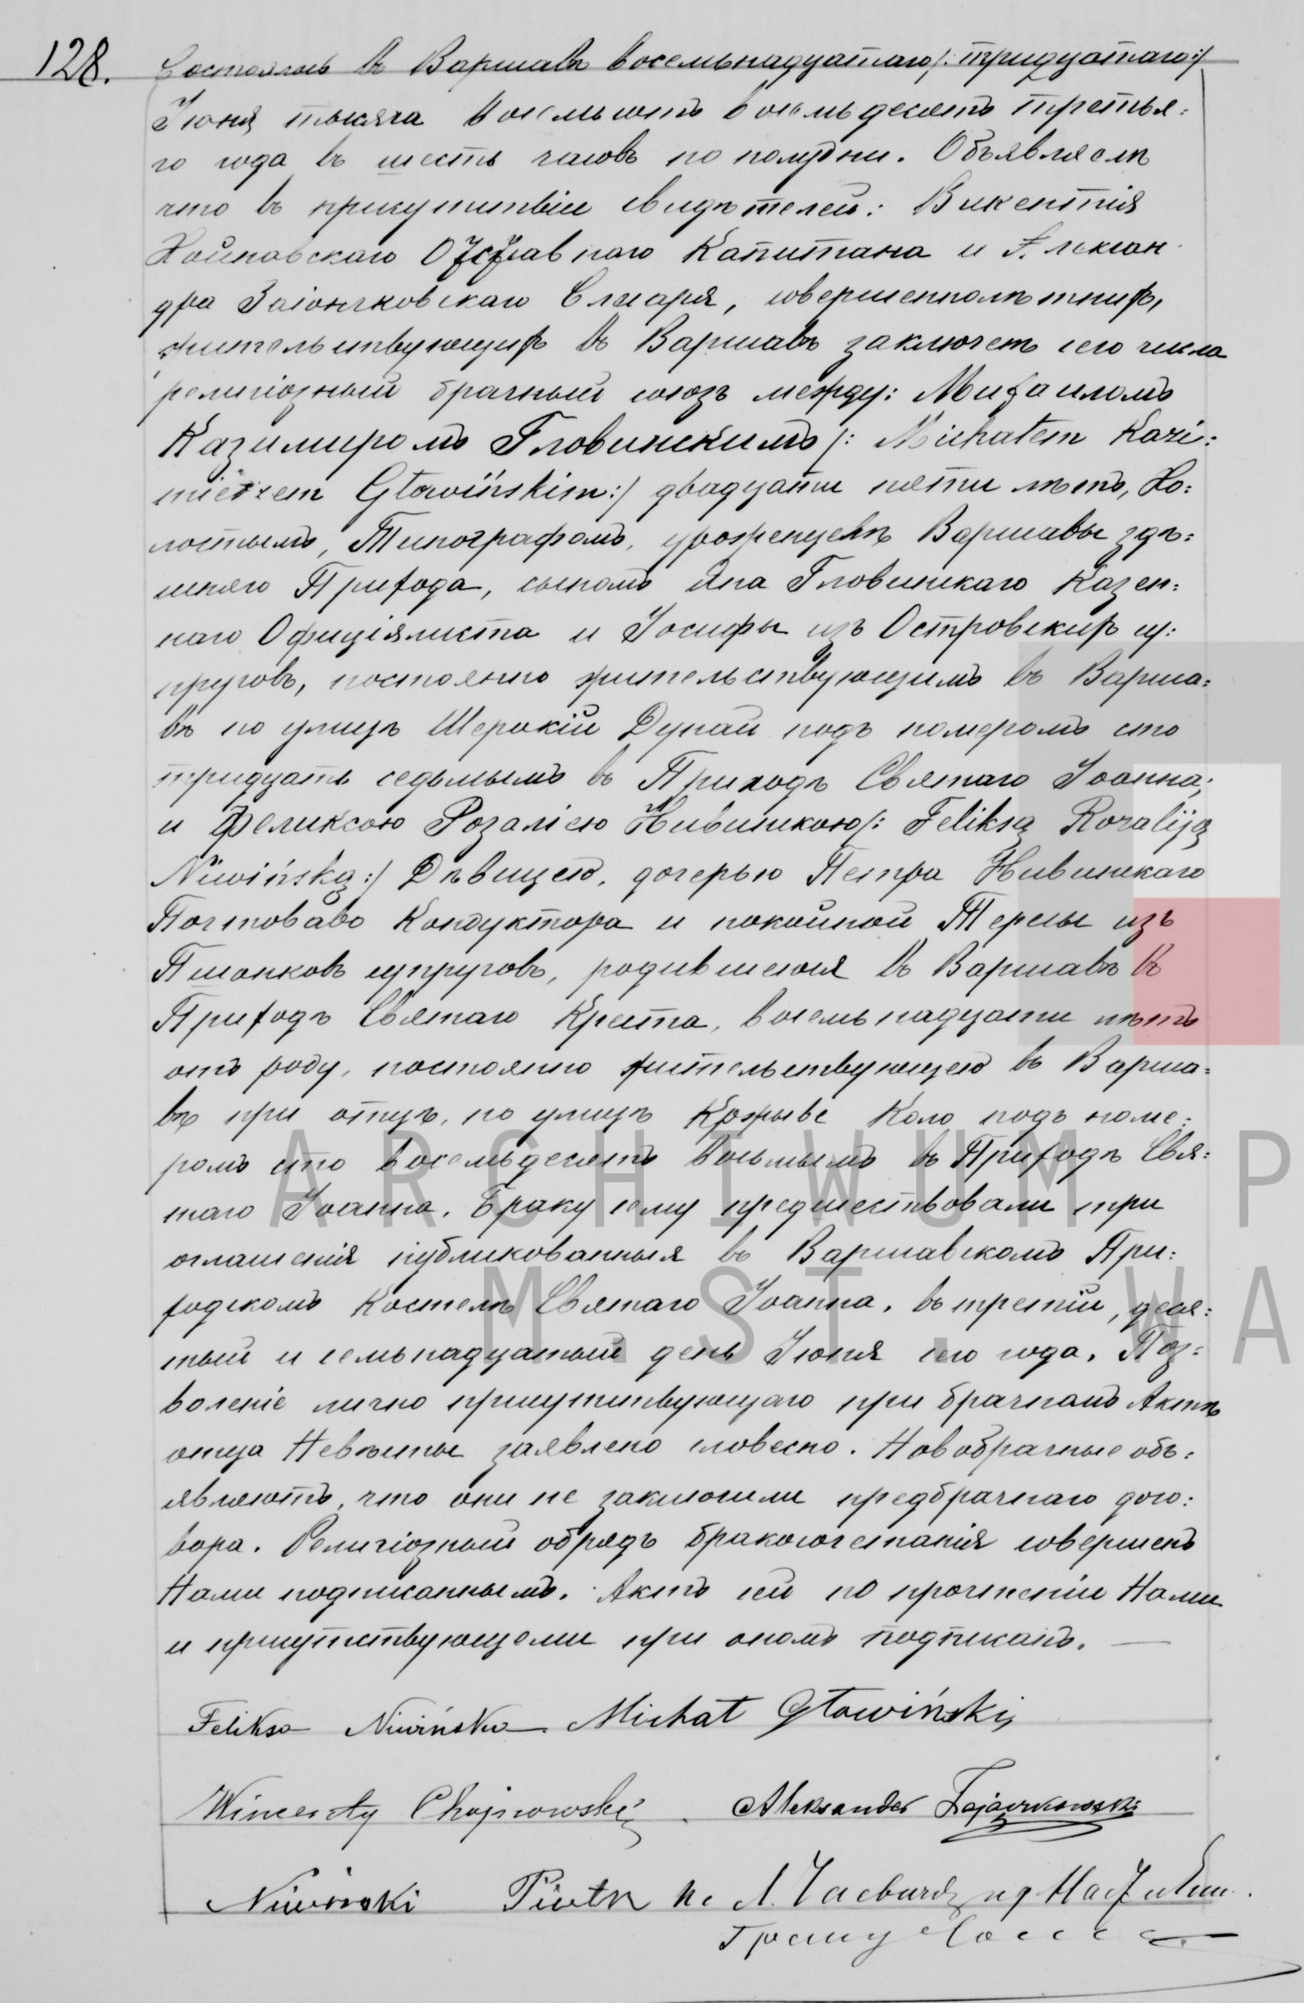 128. Состоялось въ Варшавѣ восемьнадцатаго /: тридцатаго :/
Іюня тысяча восемьсотъ восемьдесятъ третья:
го года въ шесть часовъ по полудни. Объявляемъ
что въ присутствіи свидѣтелей: Викентія
Хойновскаго Отставнаго Капитана и Алексан
дра Заіончковскаго Слесаря, совершеннолѣтнихъ,
жительствующихъ въ Варшавѣ заключенъ сего числа
религіозный брачный союзъ между: Михаиломъ
Казимиромъ Гловинскимъ /: Michałem Kazi:
mierzem Głowińskim :/ двадцати пяти лѣтъ, Хо:
лостымъ, Типографомъ, урожденцемъ Варшавы здѣ:
шняго Прихода, сыномъ Яна Гловинскаго Казен:
наго Оффиціялиста и Іосифы изъ Островскихъ су:
пруговъ, постоянно жительствующимъ въ Варша:
вѣ по улицѣ Широкій Дунай подъ номеромъ сто
тридцать седьмымъ въ Приходѣ Святаго Іоанна;
и Феликсою Розаліею Нивинскою /: Feliksą Rozaliją
Niwińską :/ Дѣвицею, дочерью Петра Нивинскаго
Почтоваво Кондуктора и покойной Тересы изъ
супруговъ, родившеюся въ Варшавѣ въ
Приходѣ Святаго Креста, восемьнадцати лѣтъ
отъ роду, постоянно жительствующею въ Варша:
вѣ при отцѣ, по улицѣ Кржыве Коло подъ номе:
ромъ сто восемьдесятъ восьмымъ въ Приходѣ Свя:
таго Іоанна. Браку сему предшествовали три
оглашенія публикованныя въ Варшавскомъ При:
ходскомъ Костелѣ Святаго Іоанна, въ третій, деся:
тый и семьнадцатый день Іюня сего года. Поз:
воленіе лично присутствующаго при брачномъ Актѣ
отца Невѣсты заявлено словесно. Новобрачные объ:
являютъ, что они не заключили предбрачнаго дого:
вора. Религіозный обрядъ бракосочетанія совершенъ
Нами подписаннымъ. Актъ сей по прочтеніи Нами
и присутствующеми при ономъ подписанъ.
Feliksa Niwińska Michał Głowiński
Wincenty Chojnowski Aleksander Zajączkowski
Niwiński Piotr
ARCHIWUM P
M.ST. WA